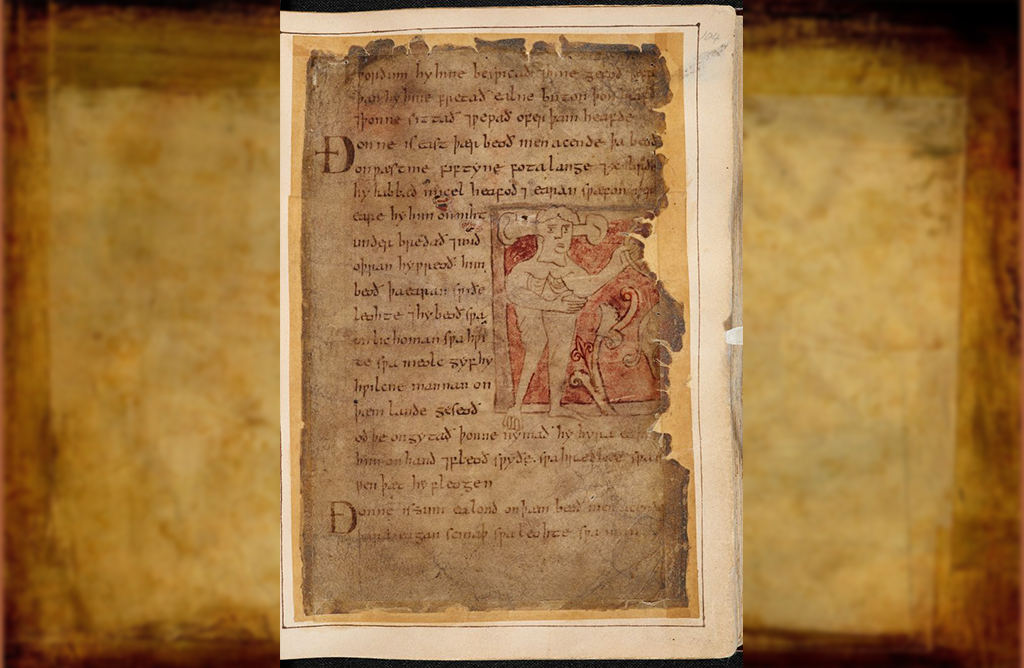 hy hine beswicað ⁊ hine gefoð
hy hine fretað ealne buton þon
⁊ þonne sittað ⁊ wepað ofer þam heafde
Ðonne is east þær beoð men acende þa beoð
on wæstme fiftyne fota lange ⁊ x
hy habbað micel heafod ⁊ earan swa fon
eare hy him on niht
under bredað ⁊ mid
oþran hy wreoð him
beoð þa earan swiðe
leohte ⁊ hy beoð swa
on lichoman swa hwi
te swa meolc gyf hy
hwilcne mannan on
þæm lande geseoð
oðþe ongytað þonne nymað hy hyra earan
him on hand ⁊ fleoð swyðe swa hrædlice swa
wen þæt hy fleogen
Ðonne is sum ealond on þam beoð men acende
þara eagan scinaþ swa leohte swa